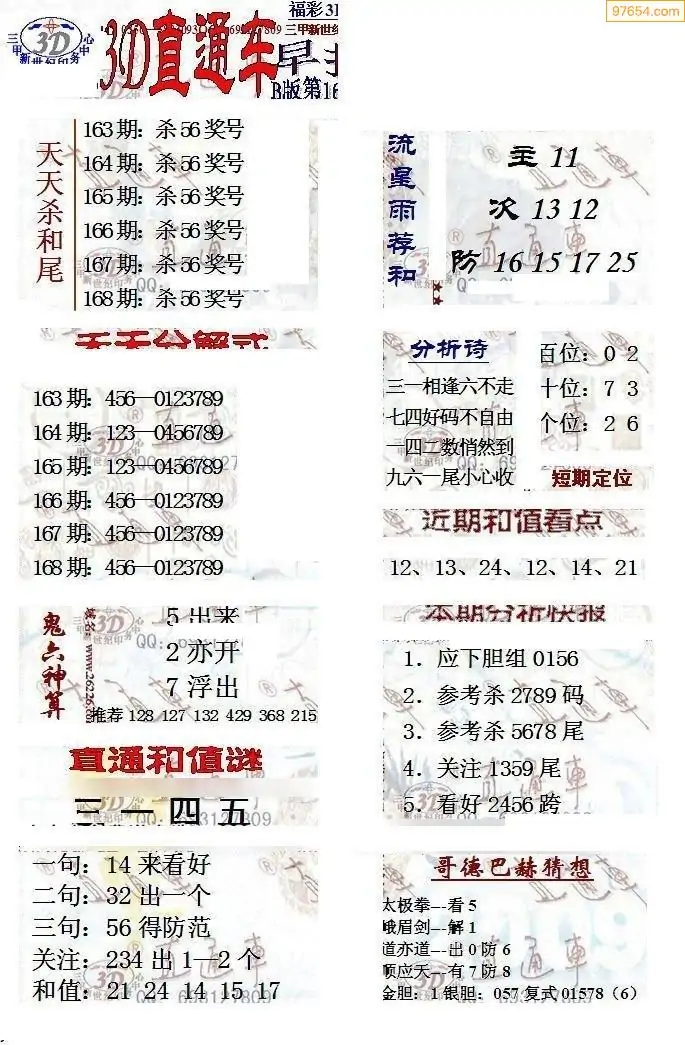 97654.com
福彩3D
三甲新世纪印务中心
3D直通车
B版第16
天天杀和尾
163期: 杀56奖号
164期: 杀56奖号
165期: 杀56奖号
166期: 杀56奖号
167期: 杀56奖号
168期: 杀56奖号
流星雨荐和
主 11
次 13 12
防 16 15 17 25
天天分解式
163期: 456—0123789
164期: 123—0456789
165期: 123—0456789
166期: 456—0123789
167期: 456—0123789
168期: 456—0123789
分析诗
三一相逢六不走
七四好码不自由
一四二数悄然到
九六一尾小心收
百位: 0 2
十位: 7 3
个位: 2 6
短期定位
近期和值看点
12、13、24、12、14、21
鬼六神算
域名: www.26226.cn
5 出来
2 亦开
7 浮出
推荐 128 127 132 429 368 215
本期分析快报
1. 应下胆组 0156
2. 参考杀 2789 码
3. 参考杀 5678 尾
4. 关注 1359 尾
5. 看好 2456 跨
直通和值谜
三 一 四 五
一句: 14 来看好
二句: 32 出一个
三句: 56 得防范
关注: 234 出 1—2 个
和值: 21 24 14 15 17
哥德巴赫猜想
太极拳---看 5
峨眉剑---解 1
道亦道---出 0 防 6
顺应天---有 7 防 8
金胆: 1 银胆: 057 复式 01578（6）